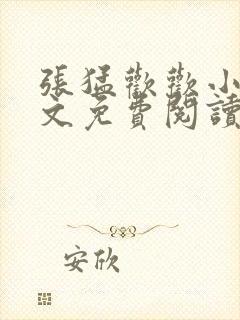 張猛歡歡小
文免費閱讀
安欣